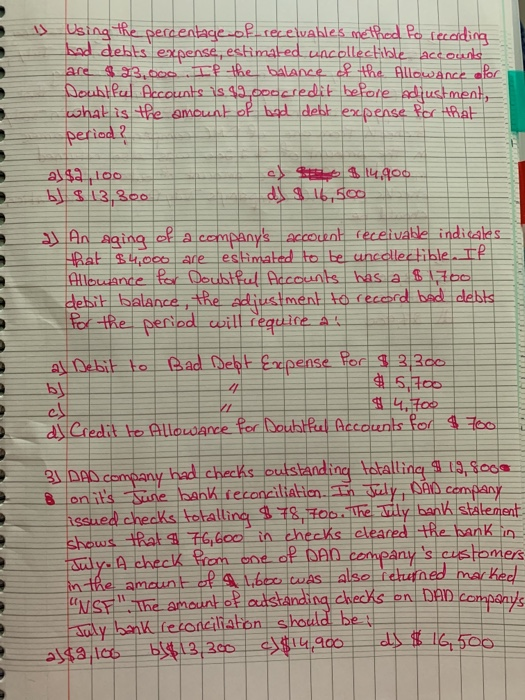 1) Using the percentage of receivables method fo recording
bad debts expense, estimated uncollectible accounts
are $ 23,000. If the balance of the Allowance for
Doubtful Accounts is $2,000 credit before adjustment,
what is the amount of bad debt expense for that
period?
a) $2,100 c) $ 14,900
b) $ 13,300 d) $ 16,500
2) An aging of a company's account receivable indicates
that $4,000 are estimated to be uncollectible. If
Allowance for Doubtful Accounts has a $ 1,700
debit balance, the adjustment to record bad debts
for the period will require a:
a) Debit to Bad Debt Expense for $ 3,300
b) " $ 5,700
c) " $ 4,700
d) Credit to Allowance for Doubtful Accounts for $ 700
3) DAD company had checks outstanding totalling
on it's June bank reconciliation. In July, DAD company
issued checks totalling $ 78,700. The July bank statement
shows that $ 76,600 in checks cleared the bank in
July. A check from one of DAD company's customers
in the amount of $ 1,600 was also returned marked
"NSF". The amount of outstanding checks on DAD company's
July bank reconciliation should be:
a) $2,100 b) $ 13,300 c) $14,900 d) $ 16,500